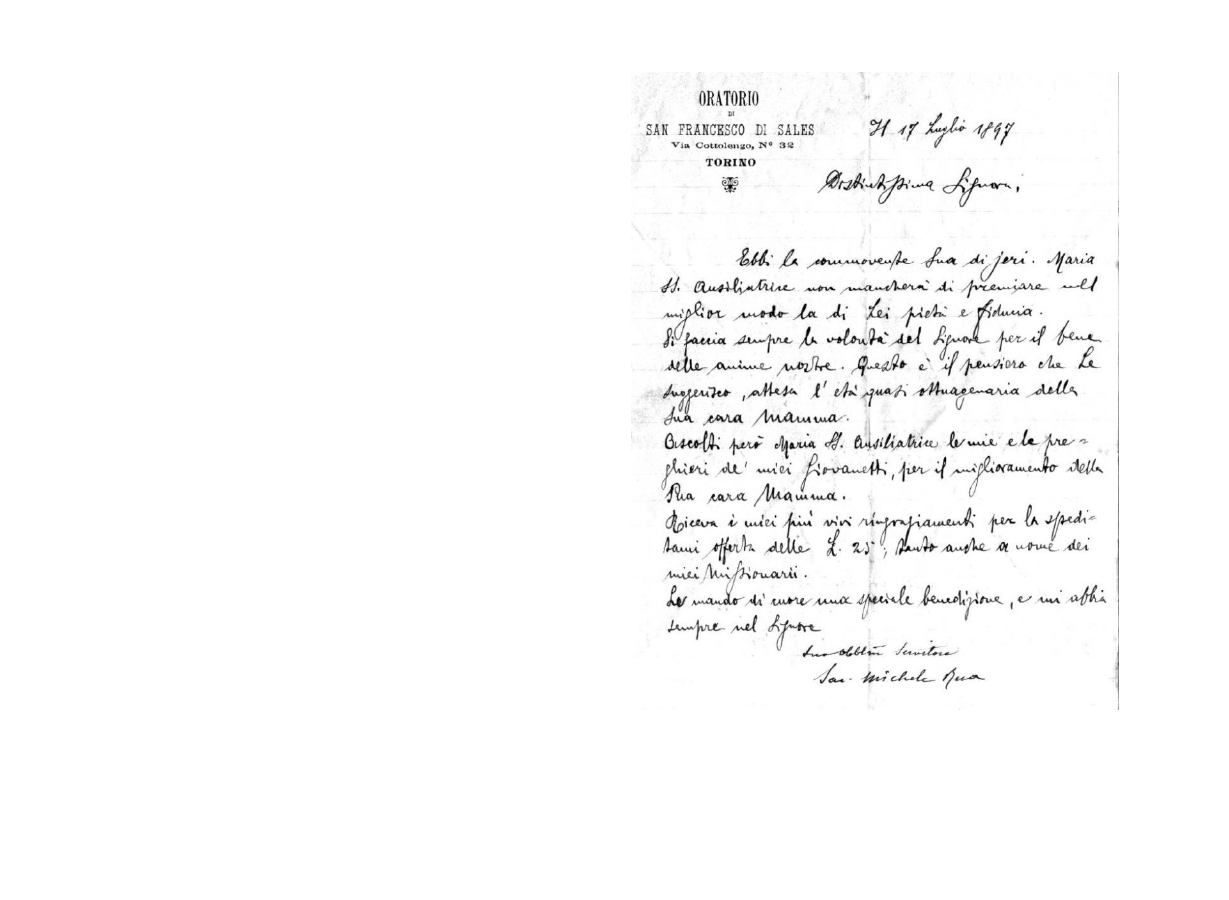 ORATORIO
DI
SAN FRANCESCO DI SALES
Via Cottolengo, Nº 32
TORINO
Il 17 Luglio 1897
Distintissima Signora,
Ebbi la commovente Sua di jeri. Maria
SS. Ausiliatrice non mancherà di premiare nel
miglior modo la di Lei pietà e fiducia.
Si faccia sempre la volontà del Signore per il bene
delle anime nostre. Questo è il pensiero che Le
suggerisco, attesa l'età quasi ottuagenaria della
Sua cara Mamma.
Ascolti però Maria SS. Ausiliatrice le mie e le pre=
ghieri de' miei Giovanetti, per il miglioramento della
Sua cara Mamma.
Riceva i miei più vivi ringraziamenti per la spedi=
tami offerta delle L. 25; tanto anche a nome dei
miei Missionarii.
Le mando di cuore una speciale benedizione, e mi abbia
sempre nel Signore
Suo Obblmo Servitore
Sac. Michele Rua